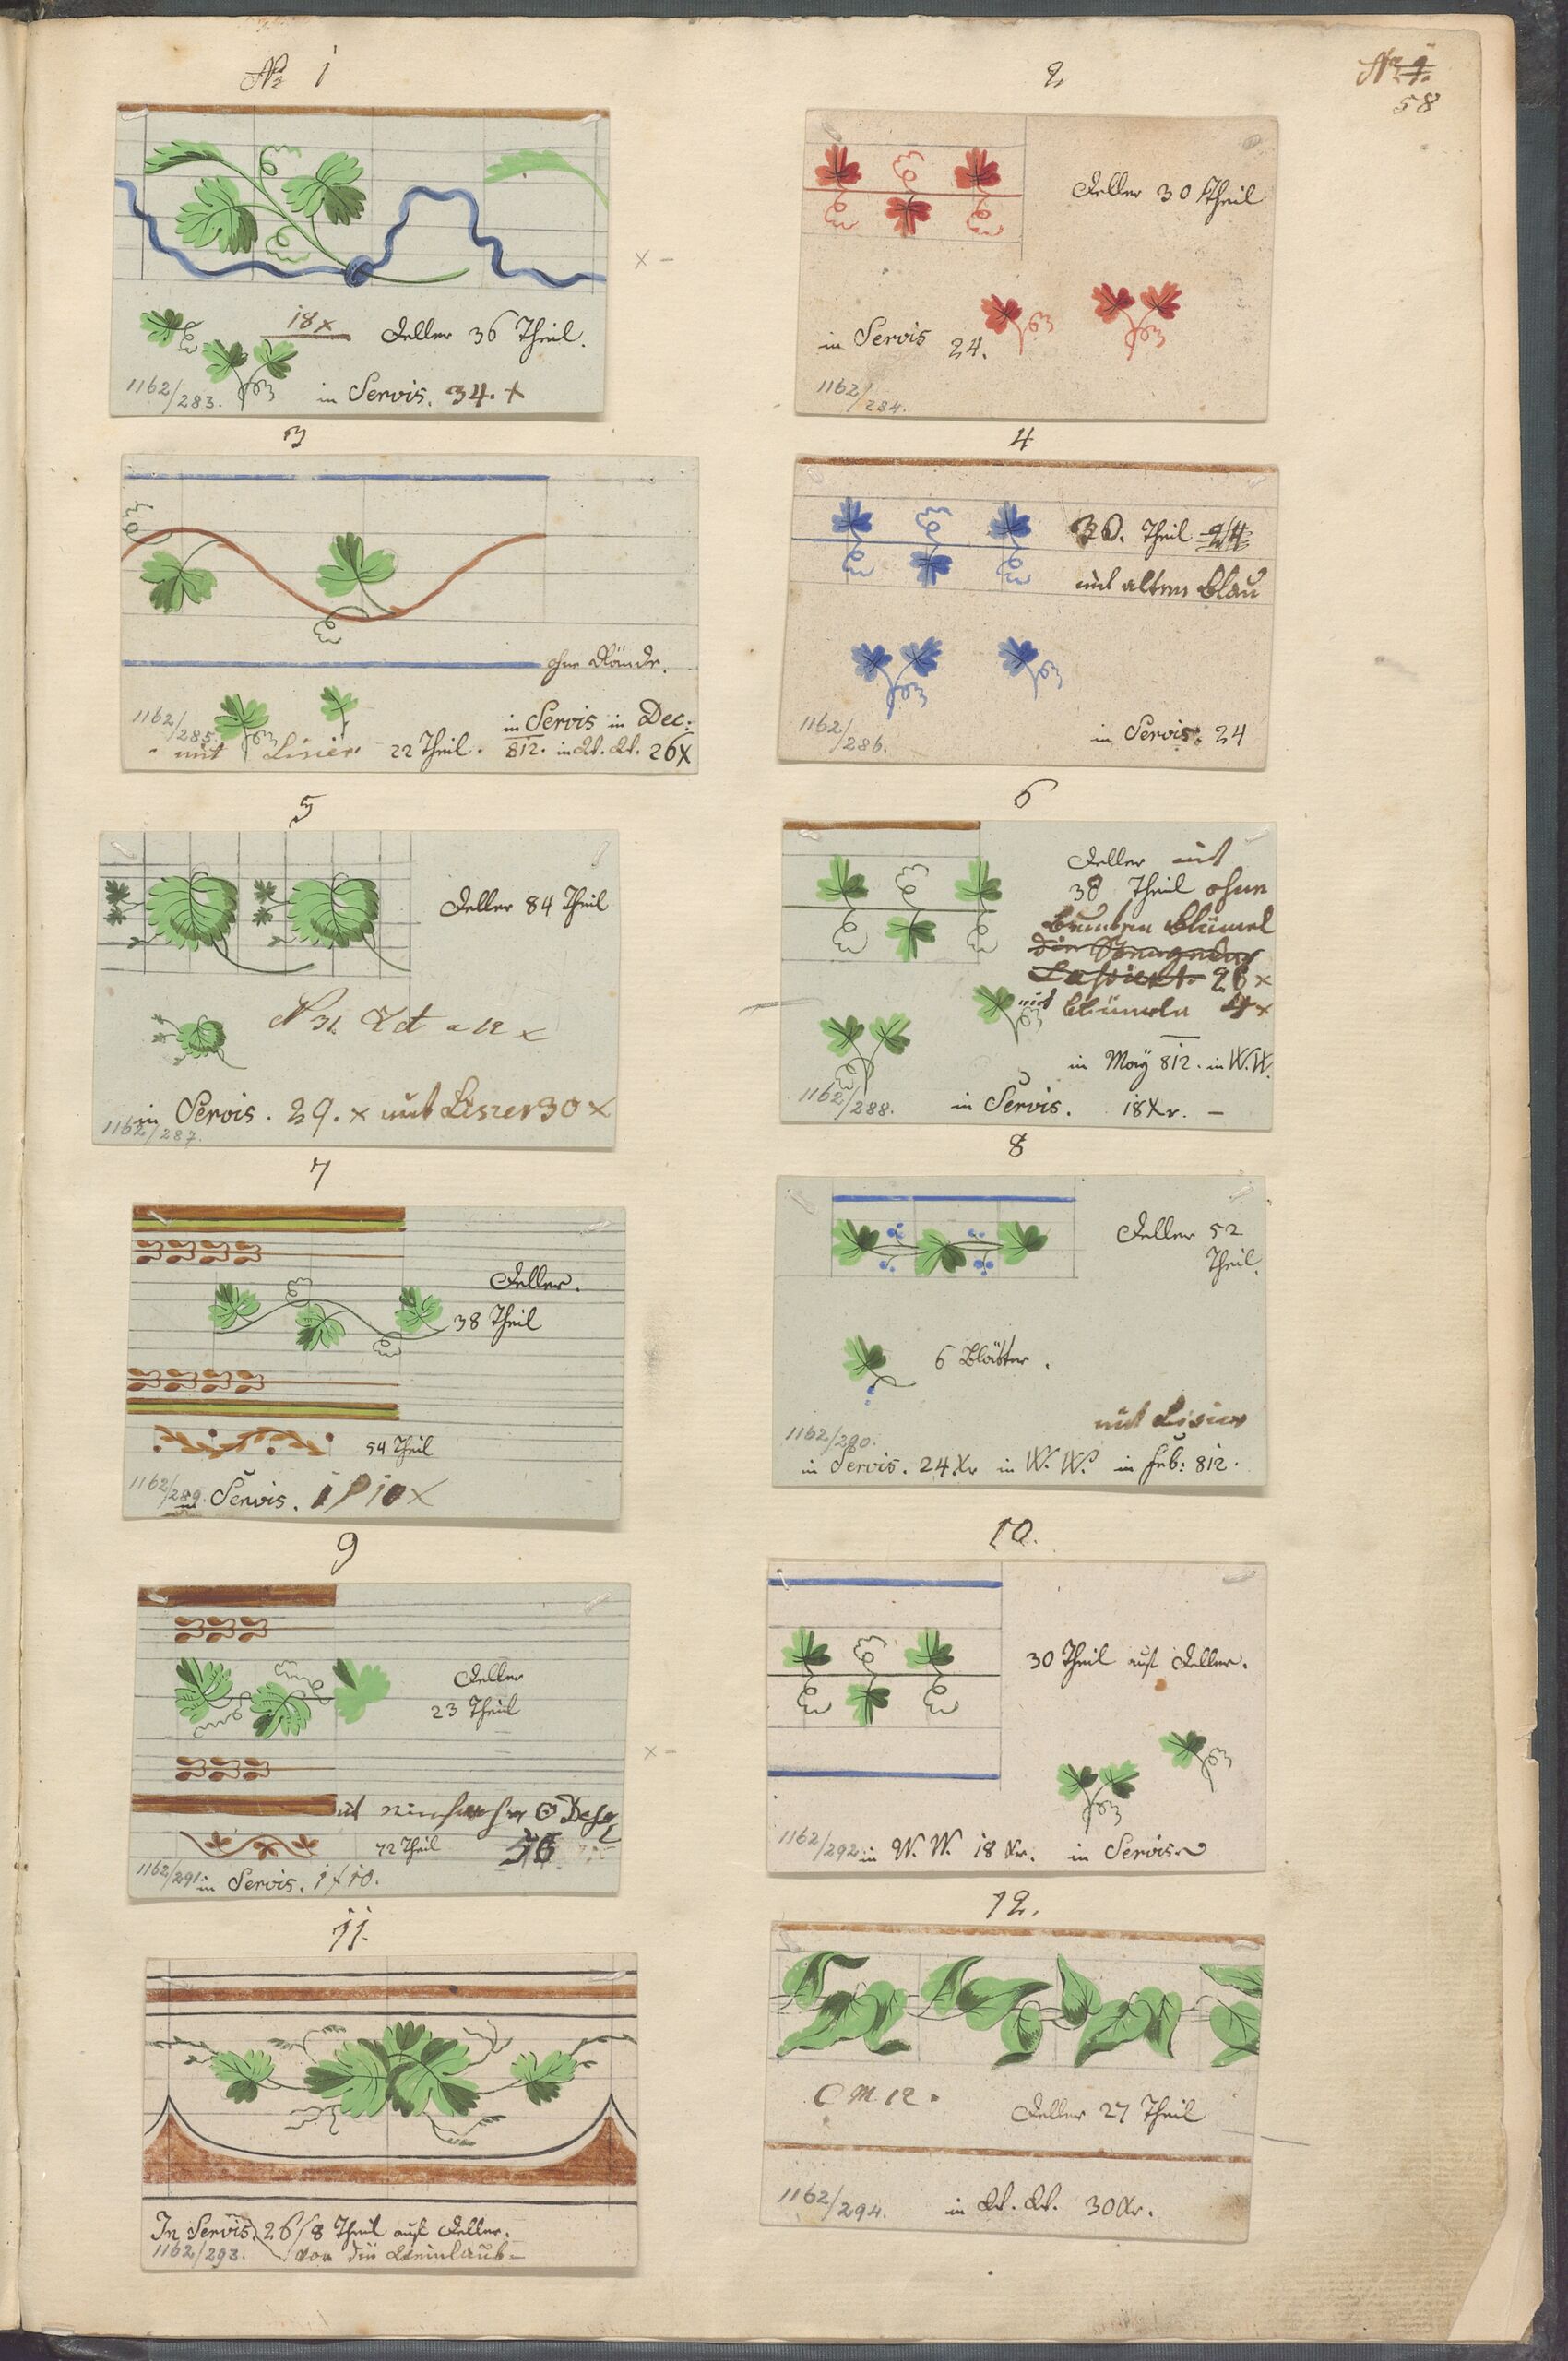 No 1
18x
Teller 36 Theil.
in Servis. 34. x
1162/283.
x -
2
No 1.
58
Teller 30 Theil
in Servis 24.
1162/284.
3
ohne Rände.
1162/285.
in Servis in Dec:
mit Lisier 22 Theil. 812. in W. W. 26x
4
30. Theil 24
mit altem Blau
in Servis. 24
1162/286.
5
Teller 84 Theil
in Servis. 29. x mit Lisier 30 x
1162/287.
6
Teller mit
38 Theil ohne
Blümel
28 x
mit Blümeln 4x
in May 812. in W. W.
in Servis. 18Xr. -
1162/288.
7
Teller.
38 Theil
54 Theil
1162/289.
in Servis. 1f 10x
8
Teller 52
Theil.
6 Blätter.
mit Lisier
1162/290.
in Servis. 24 Xr in W. W. in Feb: 812.
9
Teller
23 Theil
72 Theil
56
x -
1162/291.
in Servis. 1f 10.
10.
30 Theil auf Teller.
1162/292.
in W. W. 18 Xr. in Servis
11.
In Servis. 26/8 Theil auf Teller.
von die Weinlaub
1162/293.
12.
C M 12.
Teller 27 Theil
1162/294.
in W. W. 30Xr.